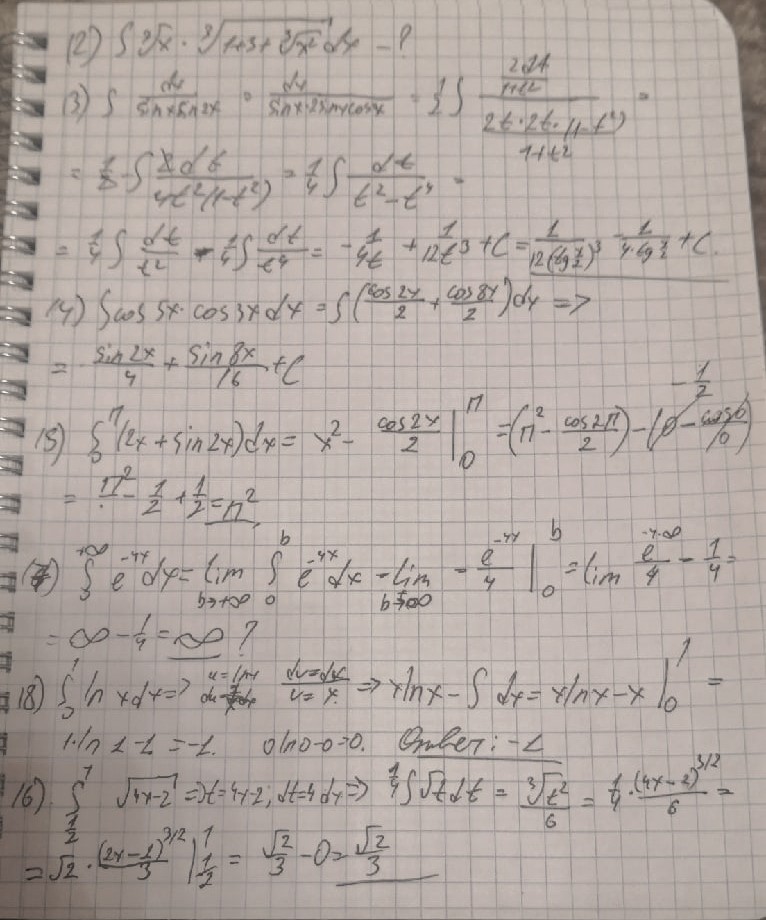 12) ∫ ∛x · ∛(1+3+∛x²) dx - ?
13) ∫ dx/(sin x sin 2x) = dx/(sin x · 2 sin x cos x) = ½∫ (2dt/(1+t²))/(2t·2t·(1-t²)/(1+t²)) =
= 1/2 · ∫ 2dt/(4t²(1-t²)) = 1/4 ∫ dt/(t²-t⁴) =
= 1/4 ∫ dt/t² - 1/4 ∫ dt/t⁴ = -1/4t + 1/12t³ + C = 1/(12(tg x/2)³) - 1/(4·tg x/2) + C.
14) ∫ cos 5x · cos 3x dx = ∫ (cos 2x/2 + cos 8x/2) dx =>
= sin 2x/4 + sin 8x/16 + C
-1/2
15) ∫₀^π (2x + sin 2x) dx = x² - cos 2x/2 |₀^π = (π² - cos 2π/2) - (0 - cos 0/0)
= π² - 1/2 + 1/2 = π²
17) ∫₀^+∞ e^-4x dx = lim b→+∞ ∫₀^b e^-4x dx = lim b→∞ - e^-4x/4 |₀^b = lim e^-4·∞/4 - 1/4 =
= ∞ - 1/4 = ∞ ?
18) ∫₀^1 ln x dx => u = ln x dv = dx v = x => x ln x - ∫ dx = x ln x - x |₀^1 =
1·ln 1 - 1 = -1. 0 ln 0 - 0 = 0. Ответ: -1
16) ∫_1/2^1 √(4x-2) => t = 4x-2; dt = 4dx => 1/4 ∫ √t dt = ∛t²/6 = 1/4 · (4x-2)^3/2/6 =
= √2 · (2x-1)^3/2/3 |_1/2^1 = √2/3 - 0 = √2/3